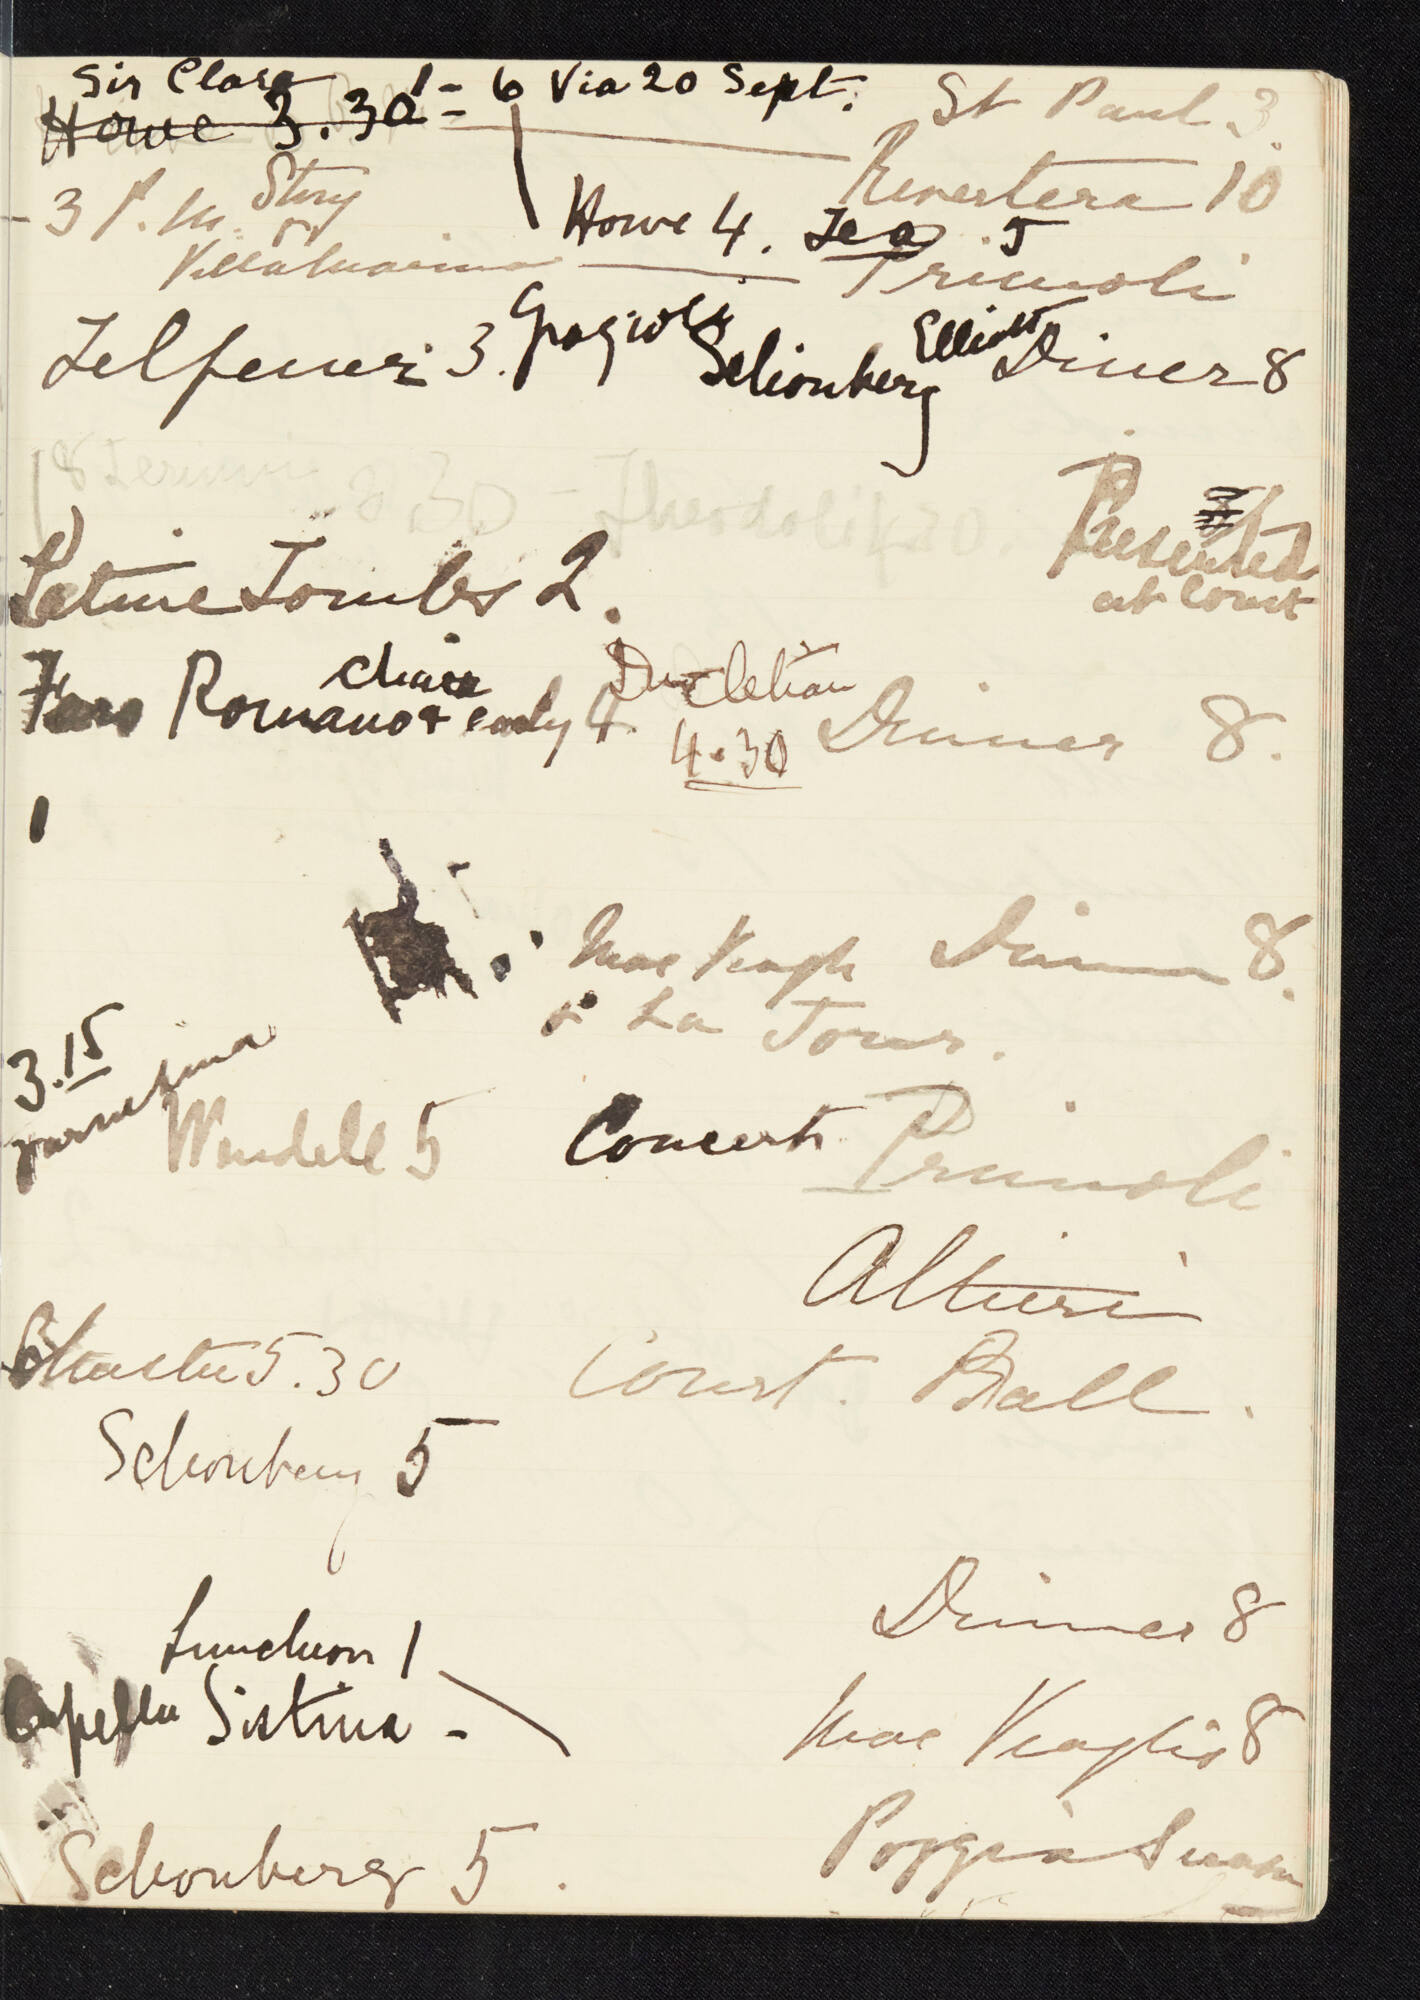 Sir Clare 1 - 6 Via 20 Sept. St Paul 3.
Howe 3.30 - Revertera 10
- 3 P.M. Story
or Howe 4. Tea 5
Primoli
Telfener 3. Schonberg Elliott Dinner 8
8 30 - Theodoli 4.30.
Presented
at Court
Latine Tombs 2.
Foro Romano & early 4. Diocletian
4.30 Dinner 8.
1
Mac Veagh Dinner 8.
& La Tour.
3.15
Farnesina
Wendell 5 Concert Primoli
Altieri
5.30 Court Ball.
Schonberg 5
Dinner 8
Luncheon 1
Capella Sistina - Mac Veagh 8
Poggio Suasa
Schonberg 5.